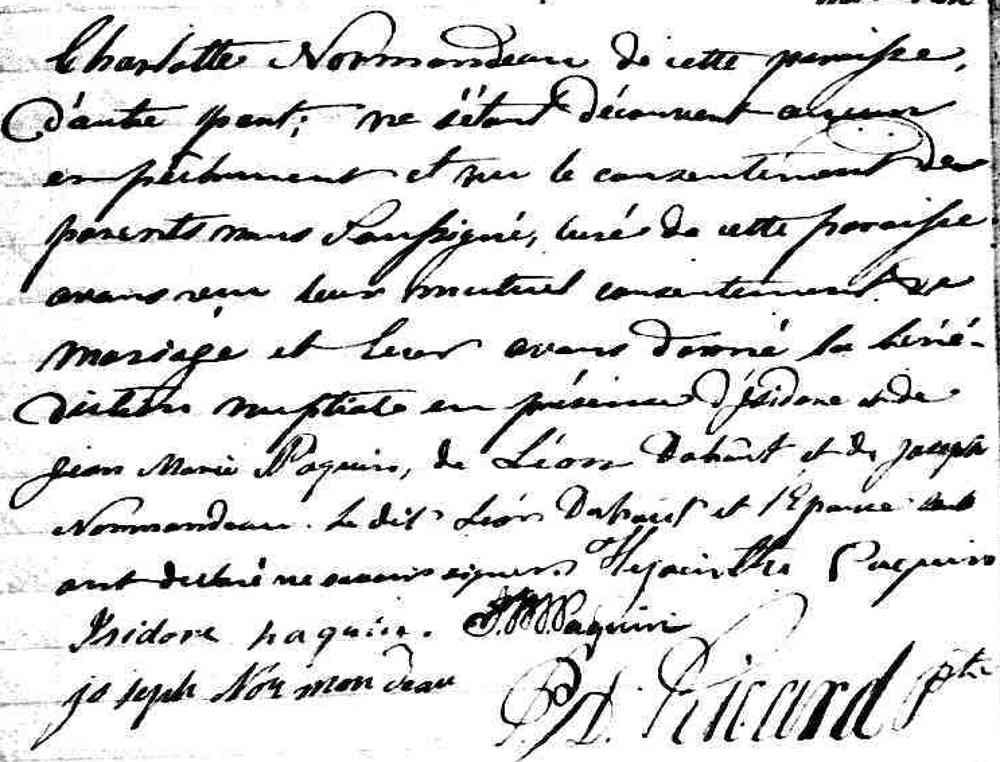 Charlotte Normandeau de cette paroisse,
d'autre part; ne s'étant découvert aucun
empêchement et vu le consentement des
parents nous Soussigné, curé de cette paroisse
avons reçu leur mutuel consentement de
mariage et leur avons donné la béné-
diction nuptiale en présence d'Isidore et de
Jean Marie Paquin, de Léon Dahaut et de Joseph
Normandeau. Le dit Léon Dahaut et l'Epouse
ont déclaré ne savoir signer. Hyacinthe Paquin
Isidore paquin. J. M. Paquin
joseph Normondeau
D. Ricard Ptre